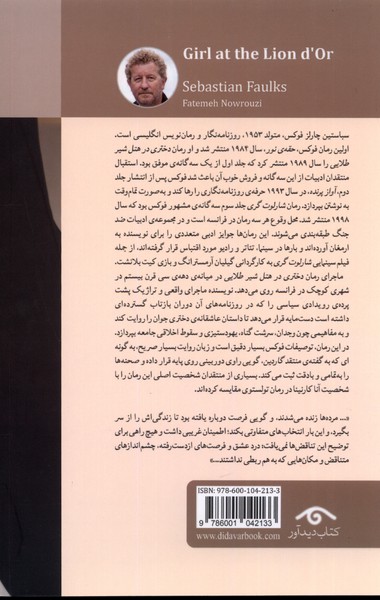 Girl at the Lion d'Or
Sebastian Faulks
Fatemeh Nowrouzi
سباستین چارلز فوکس، متولد ۱۹۵۳، روزنامه‌نگار و رمان‌نویس انگلیسی است.
اولین رمان فوکس، حقه‌ی نور، سال ۱۹۸۴ منتشر شد و او رمان دختری در هتل شیر
طلایی را سال ۱۹۸۹ منتشر کرد که جلد اول از یک سه‌گانه‌ی موفق بود. استقبال
منتقدان ادبیات از این سه‌گانه و فروش خوب آن باعث شد فوکس پس از انتشار جلد
دوم، آواز پرنده، در سال ۱۹۹۳ حرفه‌ی روزنامه‌نگاری را رها کند و به‌صورت تمام‌وقت
به نوشتن بپردازد. رمان شارلوت گری جلد سوم سه گانه‌ی مشهور فوکس بود که سال
۱۹۹۸ منتشر شد. محل وقوع هر سه رمان در فرانسه است و در مجموعه‌ی ادبیات ضد
جنگ طبقه‌بندی می‌شوند. این رمان‌ها جوایز ادبی متعددی را برای نویسنده به
ارمغان آورده‌اند و بارها در سینما، تئاتر و رادیو مورد اقتباس قرار گرفته‌اند، از جمله
فیلم سینمایی شارلوت گری به کارگردانی گیلیان آرمسترانگ و بازی کیت بلانشت.
ماجرای رمان دختری در هتل شیر طلایی در میانه‌ی دهه‌ی سی قرن بیستم در
شهری کوچک در فرانسه روی می‌دهد. نویسنده ماجرای واقعی و تراژیک پشت
پرده‌ی رویدادی سیاسی را که در روزنامه‌های آن دوران بازتاب گسترده‌ای
داشته است دست‌مایه قرار می‌دهد تا داستان عاشقانه‌ی دختری جوان را روایت کند
و به مفاهیمی چون وجدان، سرشت گناه، یهودستیزی و سقوط اخلاقی جامعه بپردازد.
در این رمان، توصیفات فوکس بسیار دقیق است و زبان روایت بسیار صریح، به گونه
ای که به گفته‌ی منتقد گاردین، گویی راوی دوربینی روی پایه قرار داده و صحنه‌ها
را به‌تمامی و بادقت ثبت می کند. بسیاری از منتقدان شخصیت اصلی این رمان را با
شخصیت آنا کارنینا در رمان تولستوی مقایسه کرده‌اند.
«... مرده‌ها زنده می‌شدند، و گویی فرصت دوباره یافته بود تا زندگی‌اش را از سر
بگیرد، و این بار انتخاب‌های متفاوتی بکند؛ اطمینان غریبی داشت و هیچ راهی برای
توضیح این تناقض‌ها نمی‌یافت؛ درد عشق و فرصت‌های ازدست‌رفته. چشم‌اندازهای
متناقض و مکان‌هایی که به هم ربطی نداشتند...»
ISBN: 978-600-104-213-3
9 786001 042133
www.didavarbook.com
کتاب دیدآور